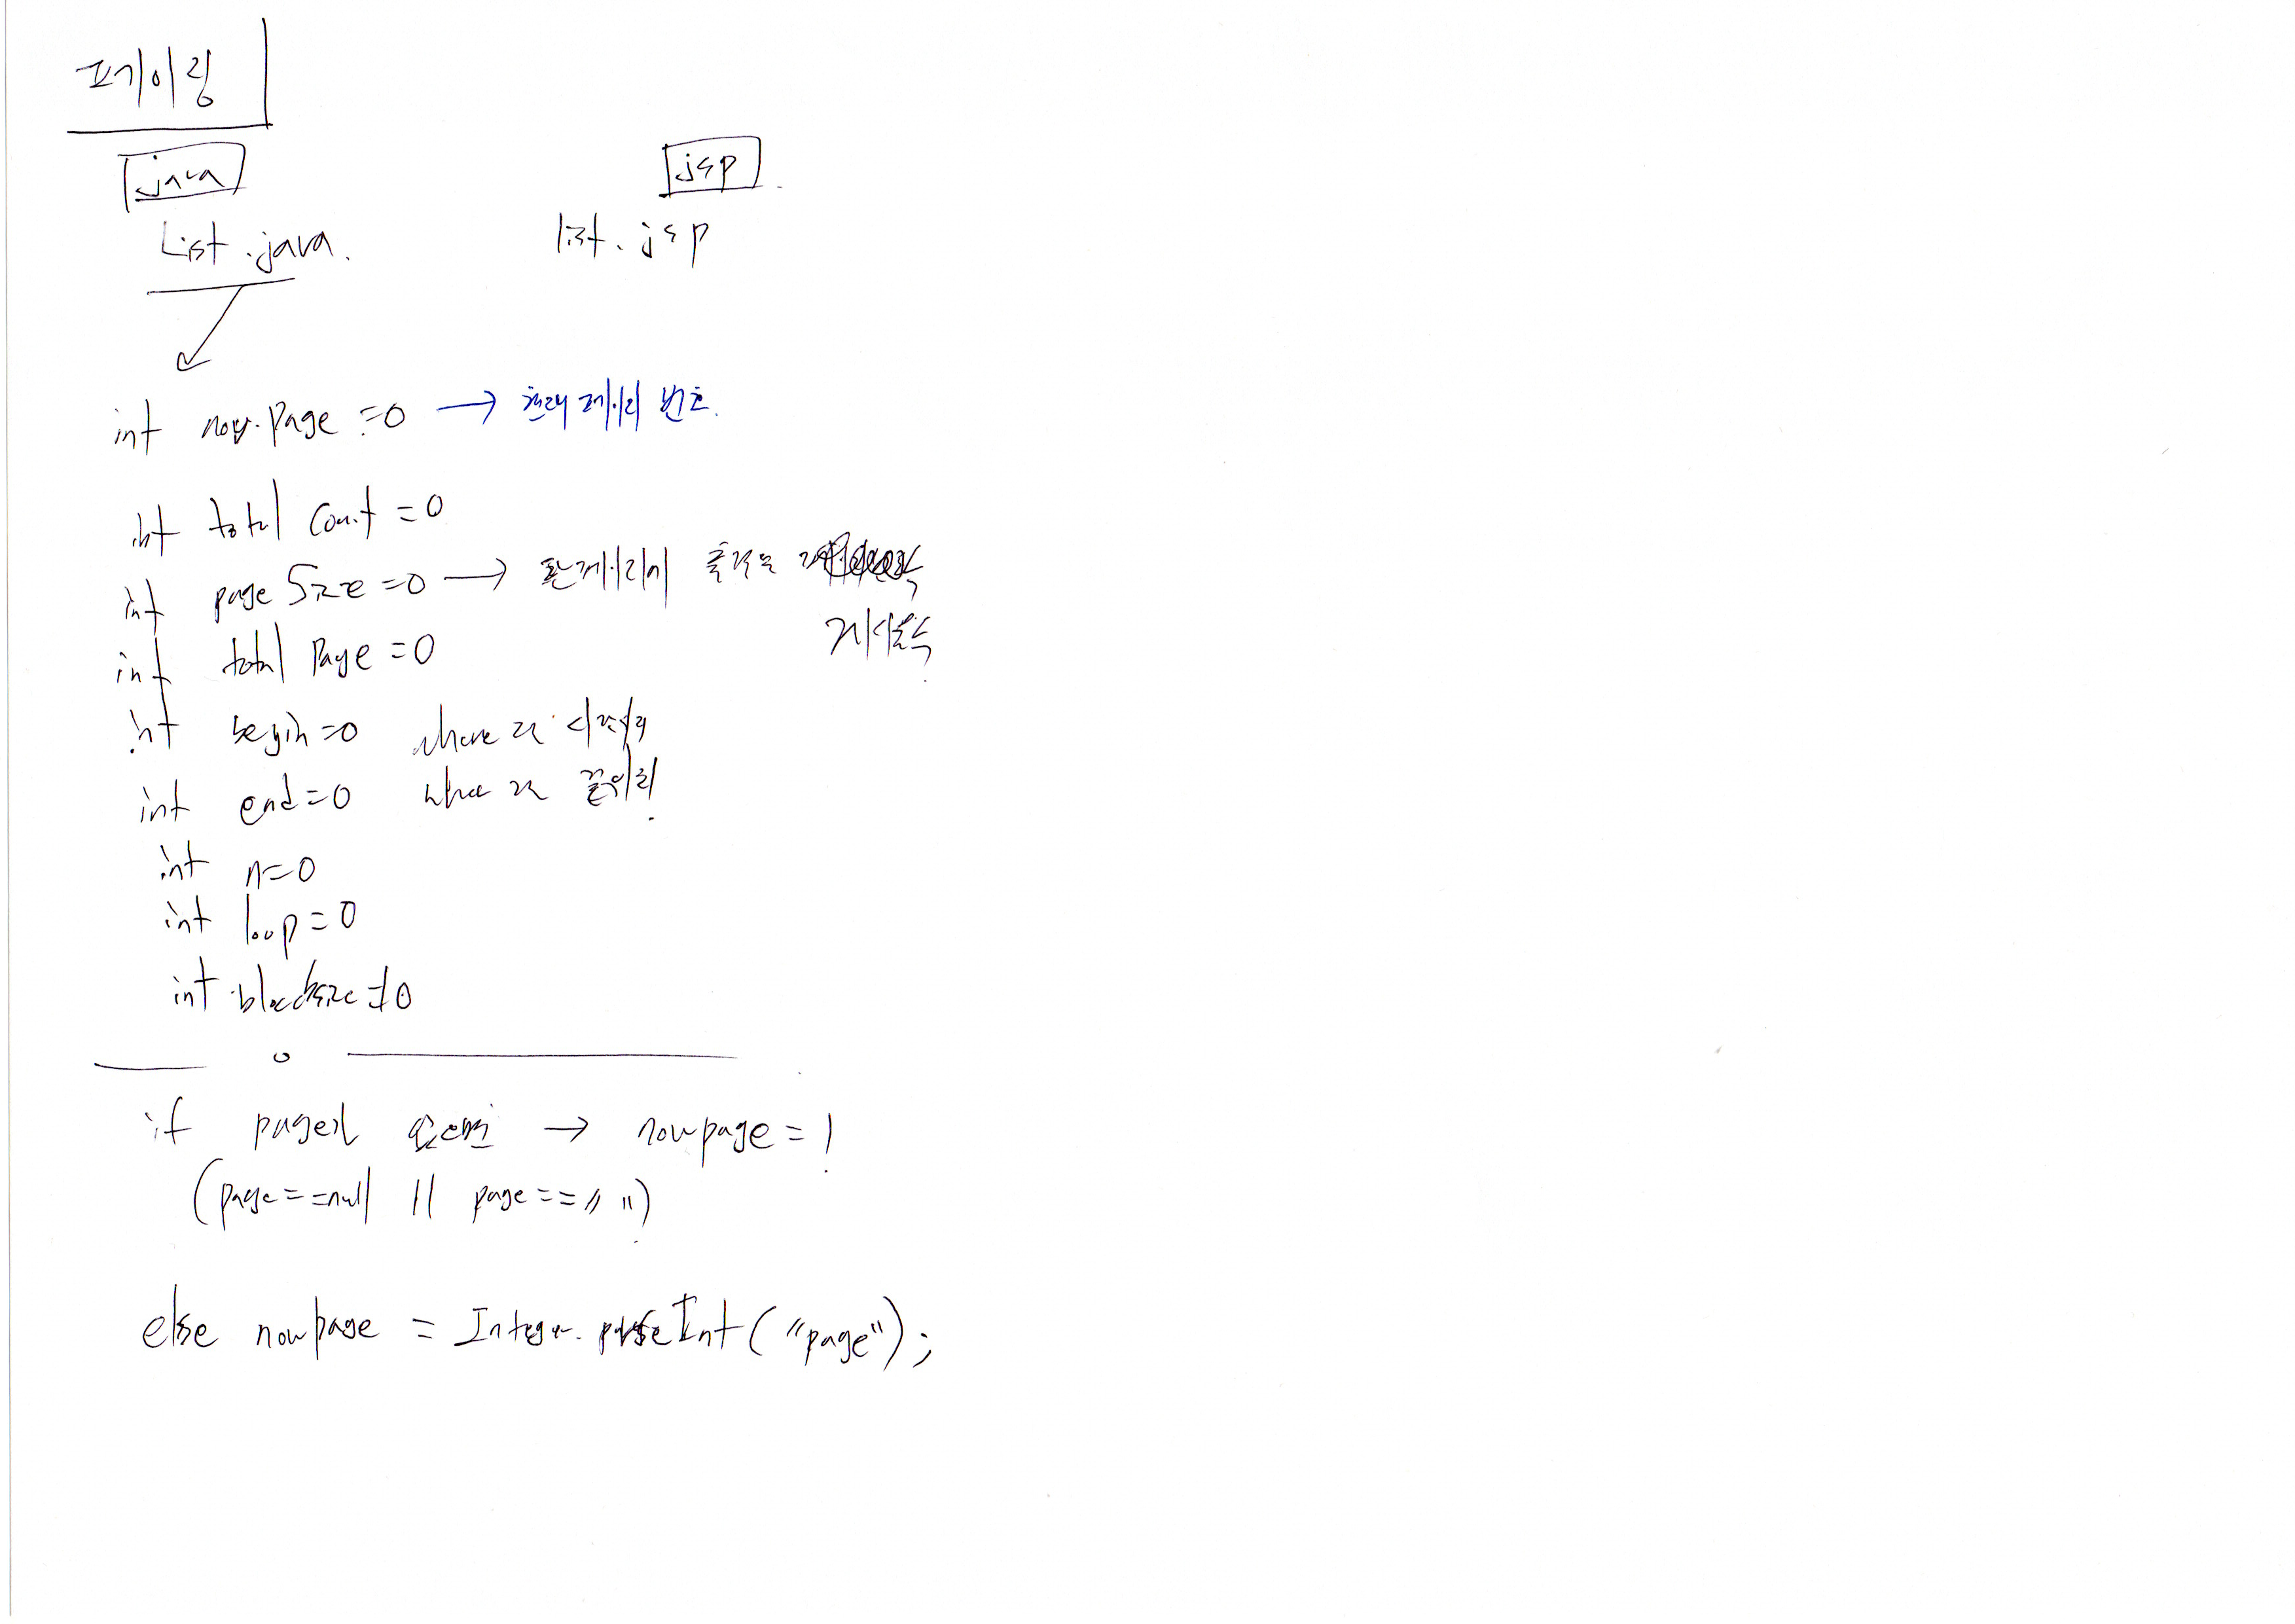 페이징
java
jsp
List.java.
list.jsp
int nowPage=0 → 현재 페이지 번호.
int totalCount=0
int pageSize=0 → 한페이지에 출력될
게시글수
int totalPage=0
int begin=0 where 절 시작위치
int end=0 where 절 끝위치
int n=0
int loop=0
int blocksize=0
if page가 없으면 → nowpage=1
(page==null || page==" ")
else nowpage = Integer.parseInt("page");